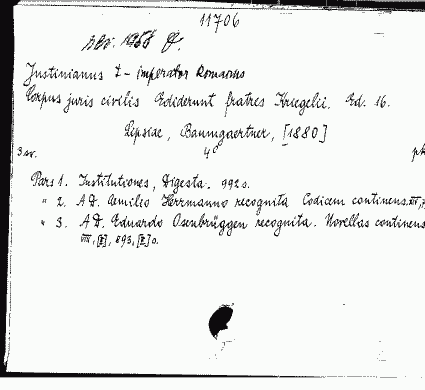 11706
rev. 1958
Justinianus I - imperator Romanus
Corpus juris civilis Ediderunt fratres Kriegelii. Ed. 16.
Lipsiae, Baumgaertner, [1880]
3 sv. 4°
Pars 1. Institutiones, Digesta. 992 s.
" 2. A D. Aemilio Herrmanno recognita Codicem continens.
" 3. A D. Eduardo Osenbrüggen recognita. Novellas continens
VIII, [II], 893, [II] s.